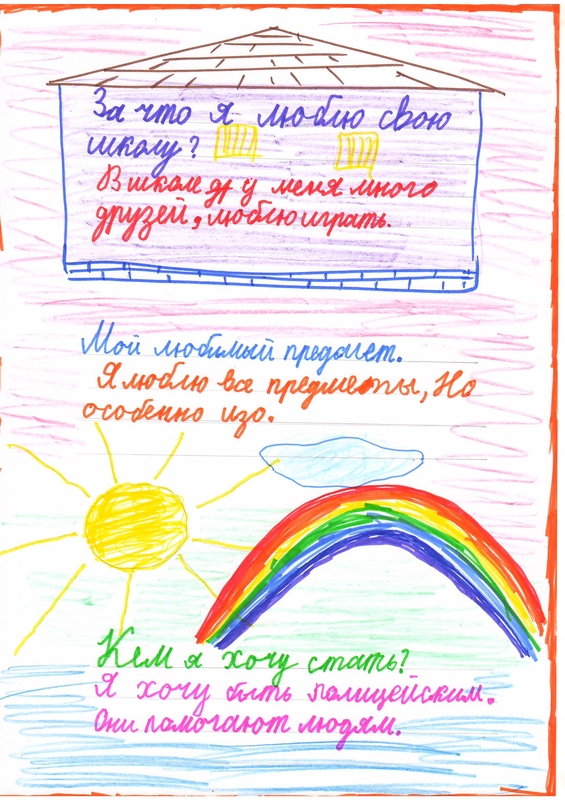 За что я люблю свою
школу?
В школе др у меня много
друзей, люблю играть.
Мой любимый предмет.
Я люблю все предметы, Но
особенно изо.
Кем я хочу стать?
Я хочу быть полицейским.
Они помогают людям.